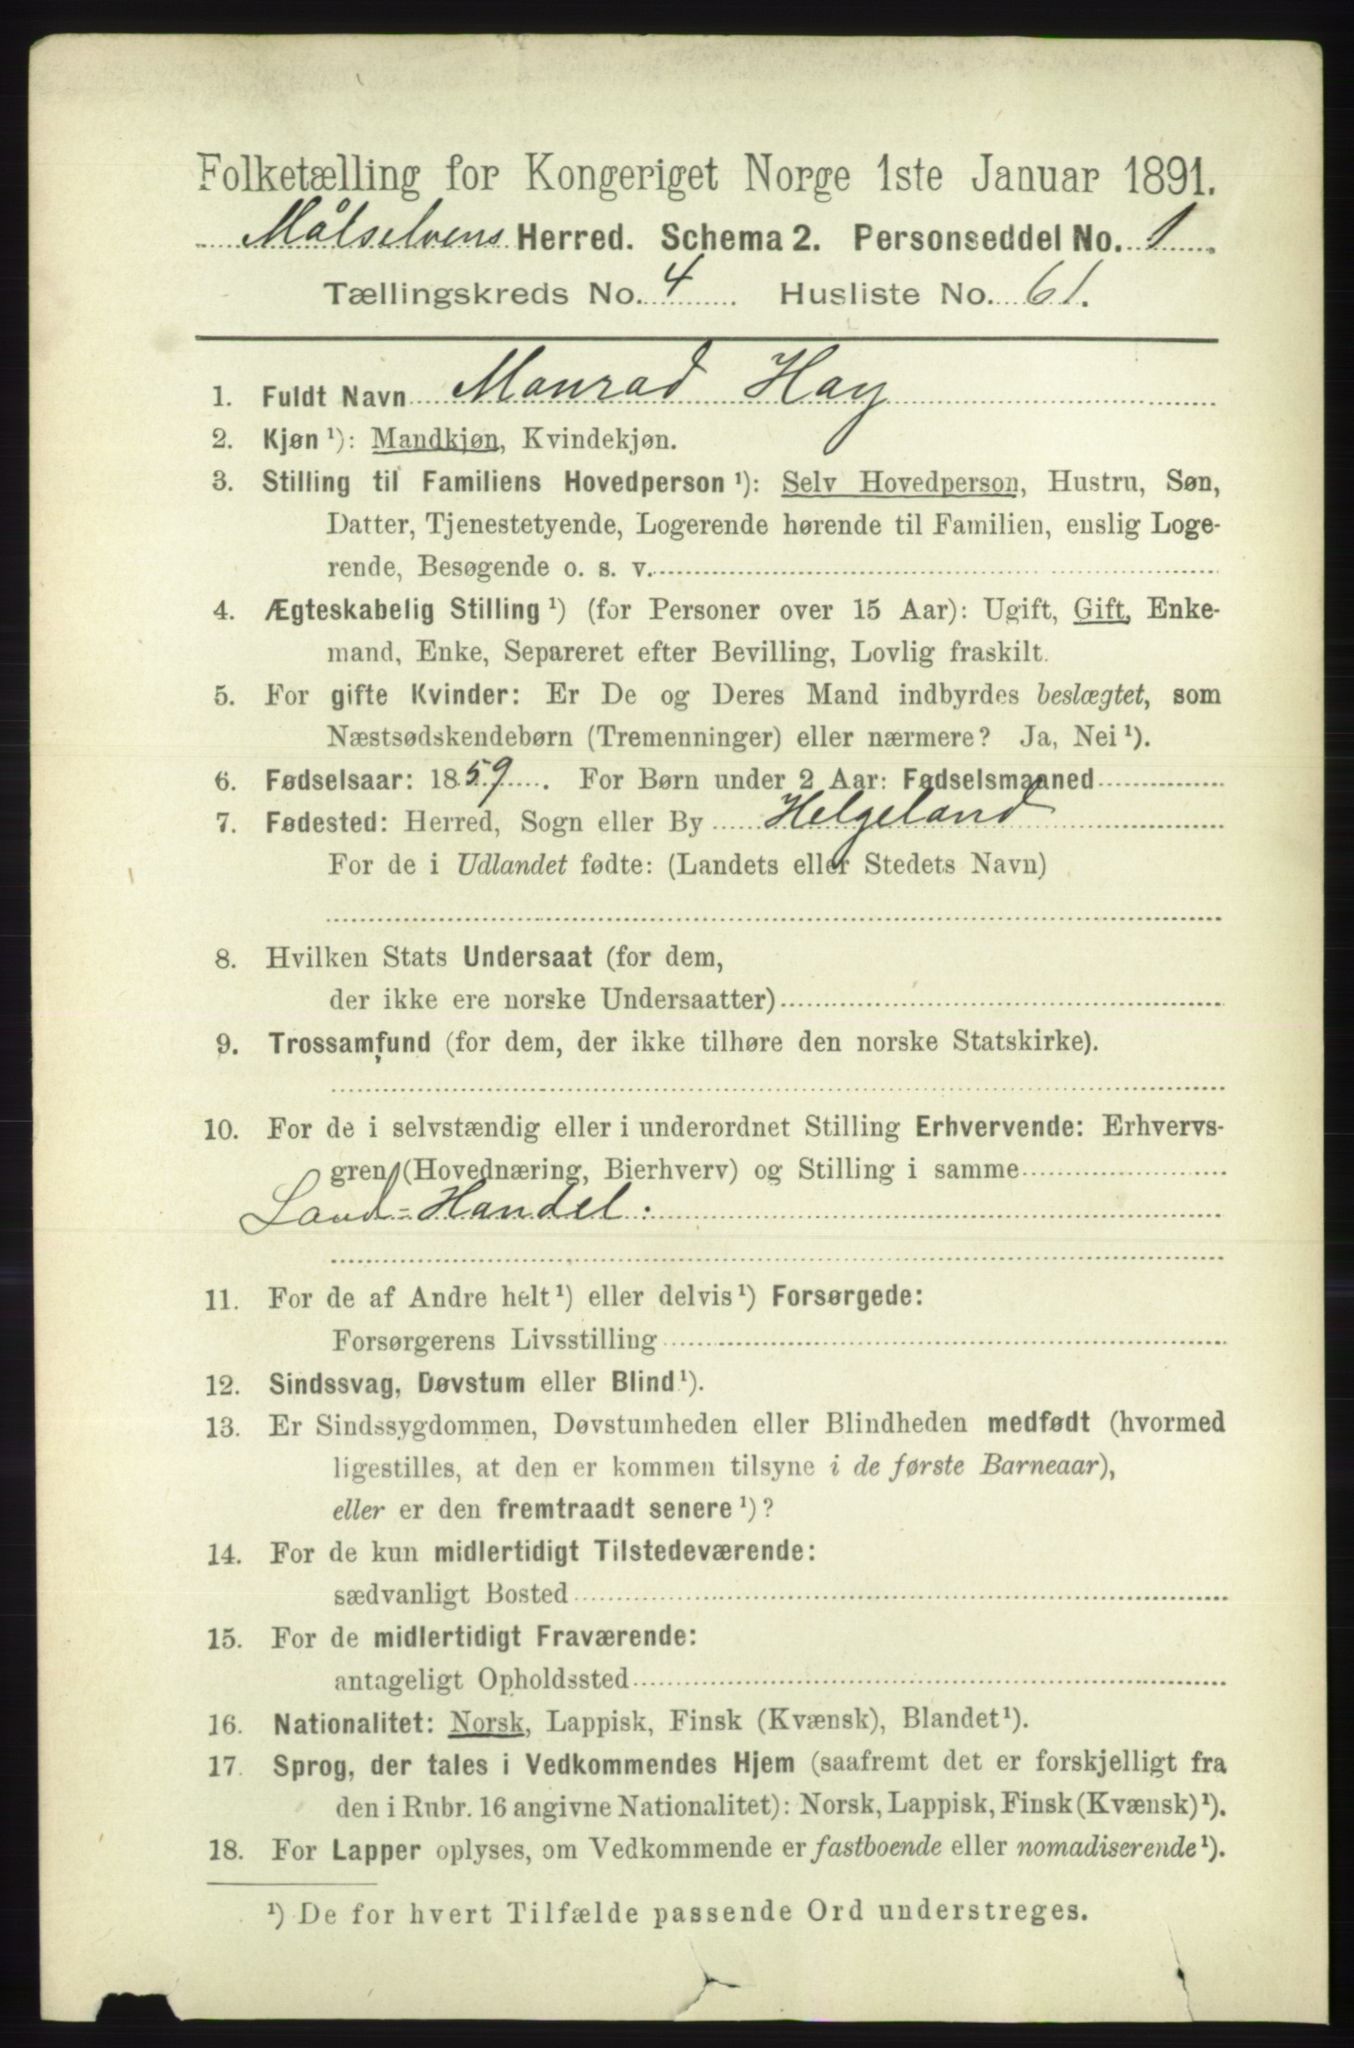 Folketælling for Kongeriget Norge 1ste Januar 1891.
Målselvens Herred. Schema 2. Personseddel No. 1
Tællingskreds No. 4 Husliste No. 61.
1. Fuldt Navn Monrad Hay
2. Kjøn ¹): Mandkjøn, Kvindekjøn.
3. Stilling til Familiens Hovedperson ¹): Selv Hovedperson, Hustru, Søn,
Datter, Tjenestetyende, Logerende hørende til Familien, enslig Loge-
rende, Besøgende o. s. v.
4. Ægteskabelig Stilling ¹) (for Personer over 15 Aar): Ugift, Gift, Enke-
mand, Enke, Separeret efter Bevilling, Lovlig fraskilt.
5. For gifte Kvinder: Er De og Deres Mand indbyrdes beslægtet, som
Næstsødskendebørn (Tremenninger) eller nærmere? Ja, Nei ¹).
6. Fødselsaar: 1859. For Børn under 2 Aar: Fødselsmaaned
7. Fødested: Herred, Sogn eller By Helgeland
For de i Udlandet fødte: (Landets eller Stedets Navn)
8. Hvilken Stats Undersaat (for dem,
der ikke ere norske Undersaatter)
9. Trossamfund (for dem, der ikke tilhøre den norske Statskirke).
10. For de i selvstændig eller i underordnet Stilling Erhvervende: Erhvervs-
gren (Hovednæring, Bierhverv) og Stilling i samme
Land=Handel.
11. For de af Andre helt ¹) eller delvis ¹) Forsørgede:
Forsørgerens Livsstilling
12. Sindssvag, Døvstum eller Blind ¹).
13. Er Sindssygdommen, Døvstumheden eller Blindheden medfødt (hvormed
ligestilles, at den er kommen tilsyne i de første Barneaar),
eller er den fremtraadt senere ¹)?
14. For de kun midlertidigt Tilstedeværende:
sædvanligt Bosted
15. For de midlertidigt Fraværende:
antageligt Opholdssted
16. Nationalitet: Norsk, Lappisk, Finsk (Kvænsk), Blandet ¹).
17. Sprog, der tales i Vedkommendes Hjem (saafremt det er forskjelligt fra
den i Rubr. 16 angivne Nationalitet): Norsk, Lappisk, Finsk (Kvænsk) ¹).
18. For Lapper oplyses, om Vedkommende er fastboende eller nomadiserende ¹).
¹) De for hvert Tilfælde passende Ord understreges.